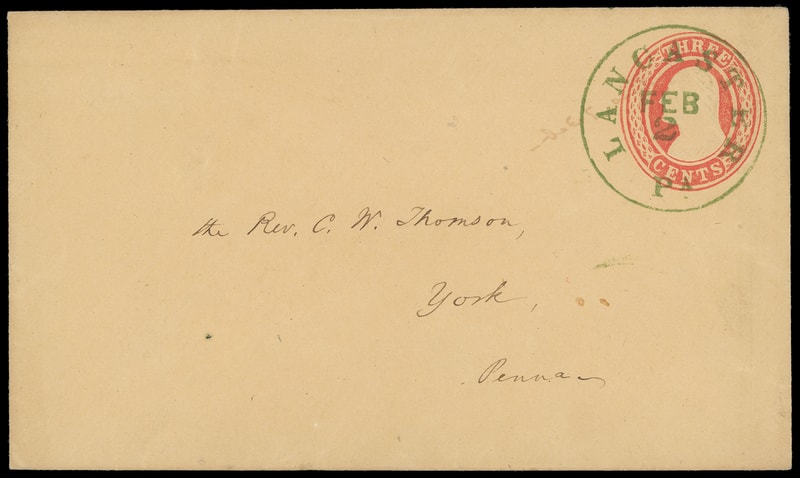 THREE
CENTS
LANCASTER
FEB
2
PA
the Rev. C. W. Thomson,
York,
Penna